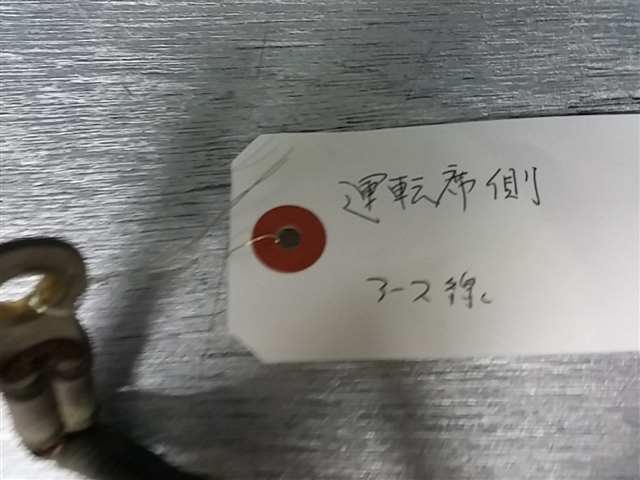 運転席側
アース線